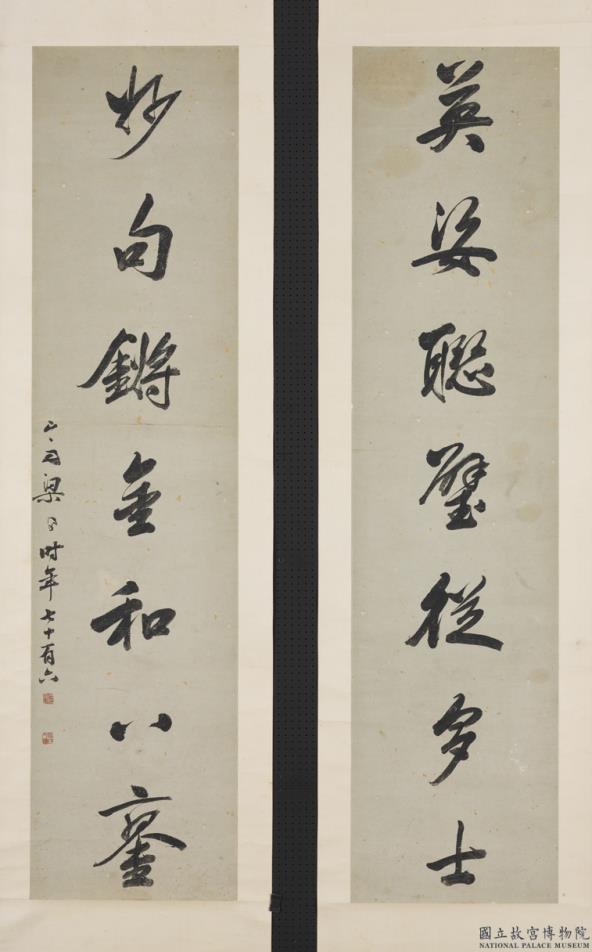 英姿聯璧從多士
妙句鏘金和八鑾
山舟梁同書時年七十有六
國立故宮博物院
NATIONAL PALACE MUSEUM